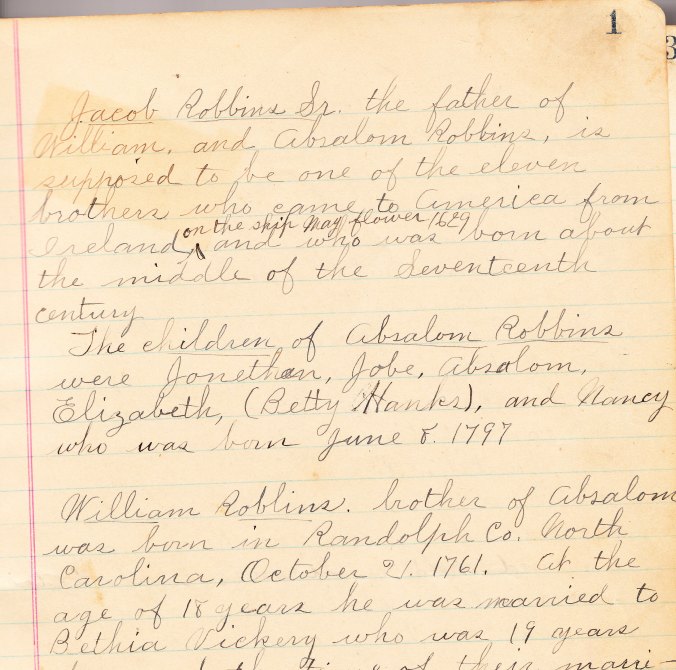 1
3
Jacob Robbins Sr. the father of
William. and Absalom Robbins, is
supposed to be one of the eleven
brothers who came to America from
on the ship May flower 1629
Ireland, and who was born about
the middle of the Seventeenth
century
The children of Absalom Robbins
were Jonethan, Jobe, Absalom,
Elizabeth, (Betty Hanks), and Nancy
who was born June 8. 1797
William Robbins. brother of Absalom
was born in Randolph Co. North
Carolina, October 21. 1761. At the
age of 18 years he was married to
Bethia Vickery who was 19 years
the time of their marri-